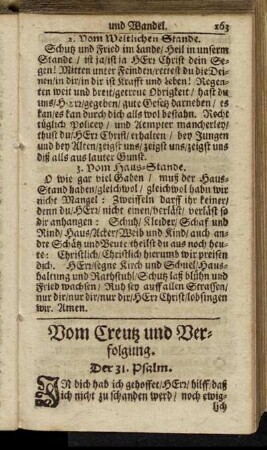 und Wandel. 163
2. Vom Weltlichen Stande.
Schutz und Fried im Lande/ Heil in unserm
Stande / ist ja/ist ja HErr Christ dein Se-
gen! Mitten unter Feinden/rettest du die Dei-
nen/in dir/in dir ist Krafft und Leben! Regen-
ten weit und breit/getreue Obrigkeit / hast du
uns/HErr/gegeben/gute Gesetz darneben / es
kan/es kan durch dich alls wol bestahn. Recht
tüglich Policey / und Aempter mancherley/
thust du/HErr Christ/erhalten / bey Jungen
und bey Alten/zeigst uns/zeigst uns/zeigst uns
diß alls aus lauter Gunst.
3. Vom Haus-Stande.
O wie gar viel Gaben / muß der Haus-
Stand haben/gleichwol / gleichwol habn wir
nicht Mangel : Zweiffeln darff ihr keiner/
denn du/HErr/ nicht einen/verläst/ verläst so
dir anhangen : Schuh/ Kleider/Schaf und
Rind/ Haus/Acker/Weib und Kind/auch an-
dre Schätz und Beute theilst du aus noch heu-
te: Christlich/Christlich hierumb wir preisen
dich. HErr/segne Kirch und Schuel/Haus-
haltung und Rathstuhl/Schutz laß blühn und
Fried wachsen / Ruh sey auff allen Strassen/
nur dir/nur dir/nur dir/HErr Christ/lobsingen
wir. Amen.
Vom Creutz und Ver-
folgung.
Der 31. Psalm.
IN dich hab ich gehoffet/HErr/ hilff/daß
ich nicht zu schanden werd / noch ewig-
lich